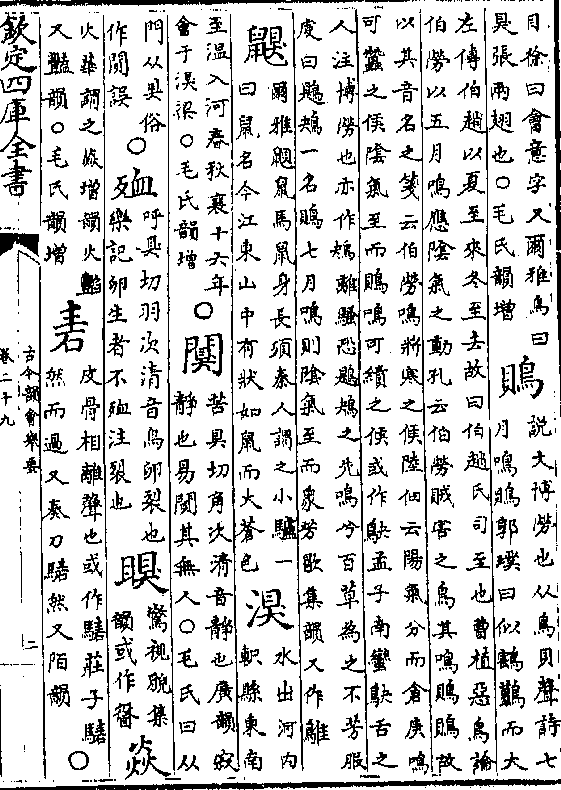 目徐曰會意字又爾雅鳥曰
狊張兩翅也○毛氏韻增
鶪
說文博勞也从鳥狊聲詩七
月鳴鶪郭璞曰似鶷鶡而大
左傳伯趙以夏至來冬至去故曰伯趙氏司至也曹植惡鳥論
伯勞以五月鳴應陰氣之動孔云伯勞賊害之鳥其鳴鶪鶪故
以其音名之箋云伯勞鳴將寒之候陸佃云陽氣分而倉庚鳴
可蠶之候陰氣至而鶪鳴可績之候或作鴃孟子南蠻鴃舌之
人注博勞也亦作鴂離騷恐鶗鴂之先鳴兮百草為之不芳服
虔曰鶗鴂一名鶪七月鳴則陰氣至而衆芳歇集韻又作
鼳
爾雅鼳鼠馬鼠身長須秦人謂之小驢一
曰鼠名今江東山中有狀如鼠而大蒼色
湨
水出河内
軹縣東南
至溫入河春秋襄十六年
會于湨梁○毛氏韻增
○闃
苦狊切角次清音靜也廣韻寂
靜也易闃其無人○毛氏曰从
門从狊俗
作閴誤
○殈
呼狊切羽次清音鳥卵裂也
樂記卵生者不殈注裂也
瞁
驚視貌集
韻或作
焱
火華謂之焱增韻火豔
又豔韻○毛氏韻增
砉
皮骨相離聲也或作騞莊子騞
然而過又奏刀騞然又陌韻
○
欽定四庫全書
古今韻會舉要
卷二十九
二